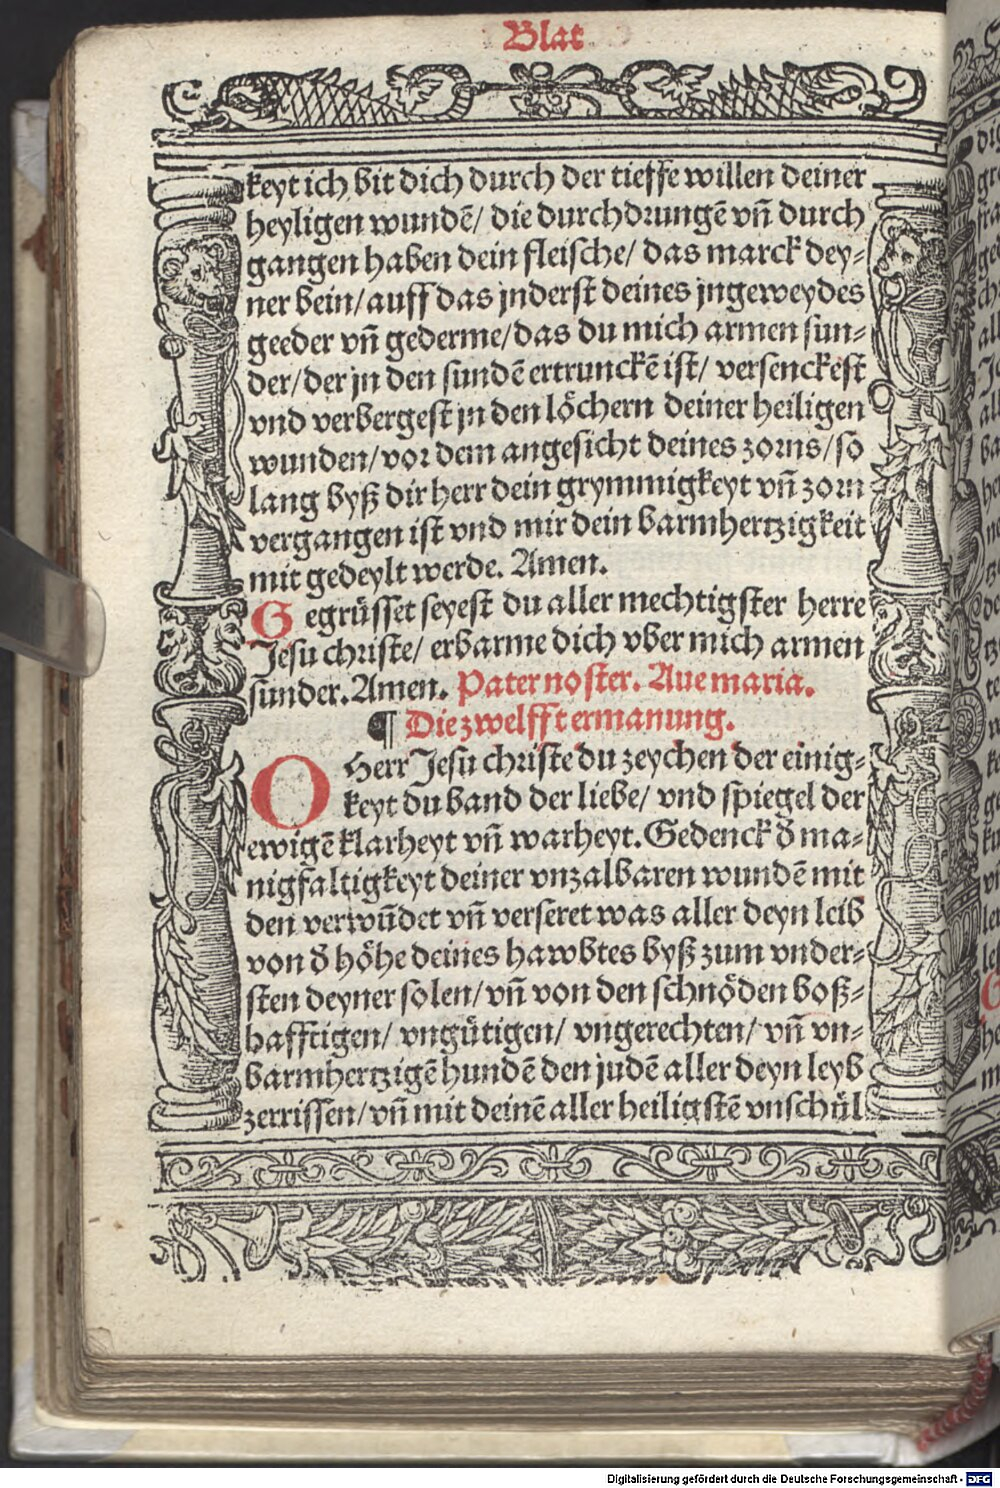 Blat
keyt ich bit dich durch der tieffe willen deiner
heyligen wundē/ die durchdrungē vñ durch
gangen haben dein fleische/ das marck dey⸗
ner bein/auff das jnderst deines jngeweydes
geeder vñ gederme/das du mich armen sun⸗
der/der jn den sundē ertrunckē ist/ versenckest
vnd verbergest jn den löchern deiner heiligen
wunden/vor dem angesicht deines zorns/so
lang byß dir herr dein grymmigkeyt vñ zorn
vergangen ist vnd mir dein barmhertzigkeit
mit gedeylt werde. Amen.
Gegrüsset seyest du aller mechtigster herre
Jesu christe/ erbarme dich vber mich armen
sunder. Amen. Pater noster. Aue maria.
¶ Die zwelfft ermanung.
O Herr Jesu christe du zeychen der einig⸗
keyt du band der liebe/ vnd spiegel der
ewigē klarheyt vñ warheyt. Gedenck đ ma⸗
nigfaltigkeyt deiner vnzalbaren wundē mit
den verwūdet vñ verseret was aller deyn leib
von đ höhe deines hawbtes byß zum vnder⸗
sten deyner solen/ vñ von den schnöden boß⸗
hafftigen/ vngütigen/ vngerechten/ vñ vn⸗
barmhertzigē hundē den judē aller deyn leyb
zerrissen/ vñ mit deinē aller heiligstē vnschül
Digitalisierung gefördert durch die Deutsche Forschungsgemeinschaft - DFG